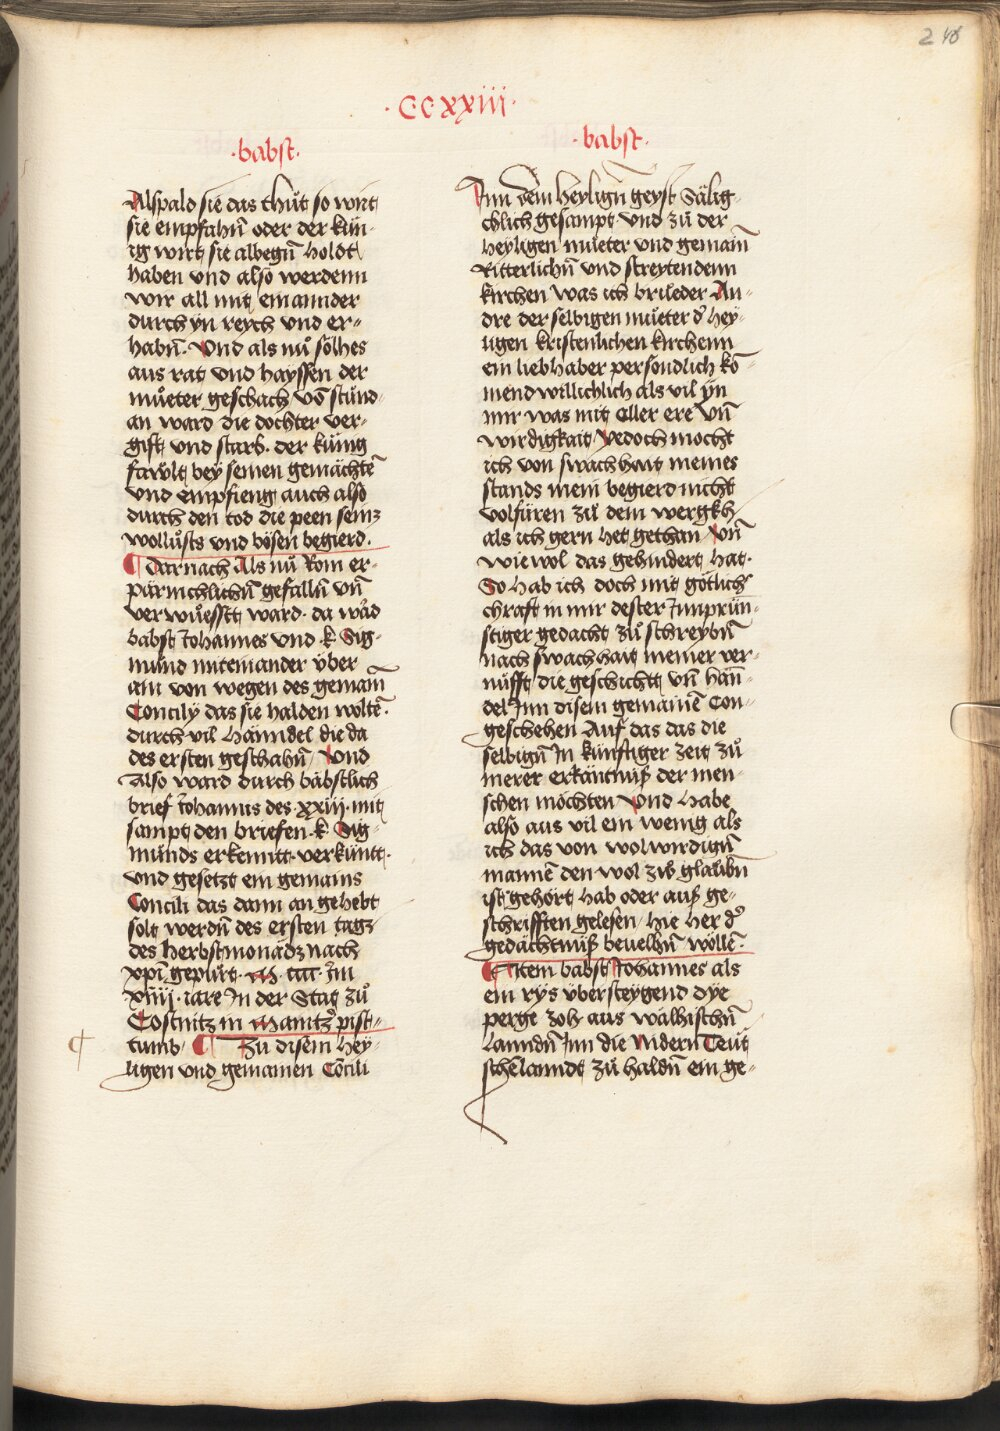 246
·CCxxiii·
·babst·
Alspald sie das thůt so wirt
sie empfahn̄ oder der kün-
ig wirt sie albegn̄ holdt
haben und also werdenn
wir all mit einannder
durch yn reych und er-
habn̄. Und als nů sölhes
aus rat und hayssen der
můeter geschach vō stund
an ward die dochter ver-
gift und starb. der küng
fawlt bey seinen gemächtē
und empfieng auch also
durch den tod die peen seinz
wollůsts und bösen begierd.
¶ Darnach Als nů Rom er-
pärmchlichn̄ gefalln̄ vn̄
verwůesstt ward. da ward
babst Johannes und .k. Sig-
mund miteinander über
ain von wegen des gemain̄
Concily das sie halden woltē.
durch vil hänndel die da
des ersten geschahn̄ Und
Also ward durch bäbstlich
brief Johannis des xxiij. mit
sampt den briefen .k. Sig-
münds erkennt. verküntt.
und gesetzt ein gemains
Concili das dann an gehebt
solt werdn̄ des ersten tagz
des herbstmonadz nach
xpi gepurt. M. cccc. Im
xiiij. iare In der Stat zů
Costnitz in Maintz pist-
tumb. ¶ Zu disem hey-
ligen und gemainen Cōcili
·babst·
Inn dem heylign̄ geyst Sälig-
chlich gesampt und zů der
heyligen můeter und gemain̄
Ritterlichn̄ und streytendenn
kirchen was ich brüeder An-
dre der selbigen můeter d' hey-
ligen kristenlichen kirchenn
ein liebhaber persondlich kō
mend willichlich als vil yn
mir was mit eller ere vn̄
wirdigkait yedoch mocht
ich von swachhait meines
stands mein begierd nicht
volfüren zů dem wergkh
als ich gern het gethan vn̄
wiewol das gehindert hat.
So hab ich doch mit götlich'
chraft in mir dester Innprün-
stiger gedacht zů schreybn̄
nach swachhait meiner ver-
nüfft die geschichtt vn̄ hän̄-
del Inn disem gemainē Con-
geschehen Auf das das die
selbign̄ In künftiger zeit zů
merer erkäntnüß der men-
schen möchten Und habe
also aus vil ein wenig als
ich das von wolwirdign̄
mannē den wol zw glaubn̄
ist gehört hab oder auß ge-
schrifften gelesen. hie her d'
gedächtnüß bevelhn̄ wöllē.
¶ Item babst Johannes als
ein rys übersteygend dye
perge zoh aus wälhischn̄
lanndn̄ Inn die Nidern Teut
schēlanndt zů haldn̄ ein ge-